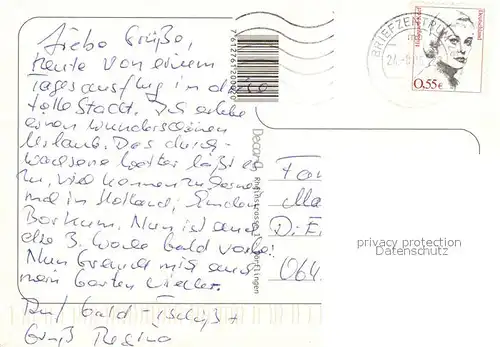 Liebe Grüße,
heute von einem
Tagesausflug in diese
tolle Stadt. Ich erlebe
einen wunderschönen
Urlaub. Das durch-
wachsene Wetter läßt es
zu, viel kennenzulernen
mal in Holland, Emden
Borkum. Nun ist auch
die 3. Woche bald vorbei.
Nun freund mich auch
mein Garten wieder.
Auf bald - Tschüß +
Gruß Regina
BRIEFZENTRUM
Deutschland
0,55€
Fam
Ma
D. E
064
privacy protection
Datenschutz